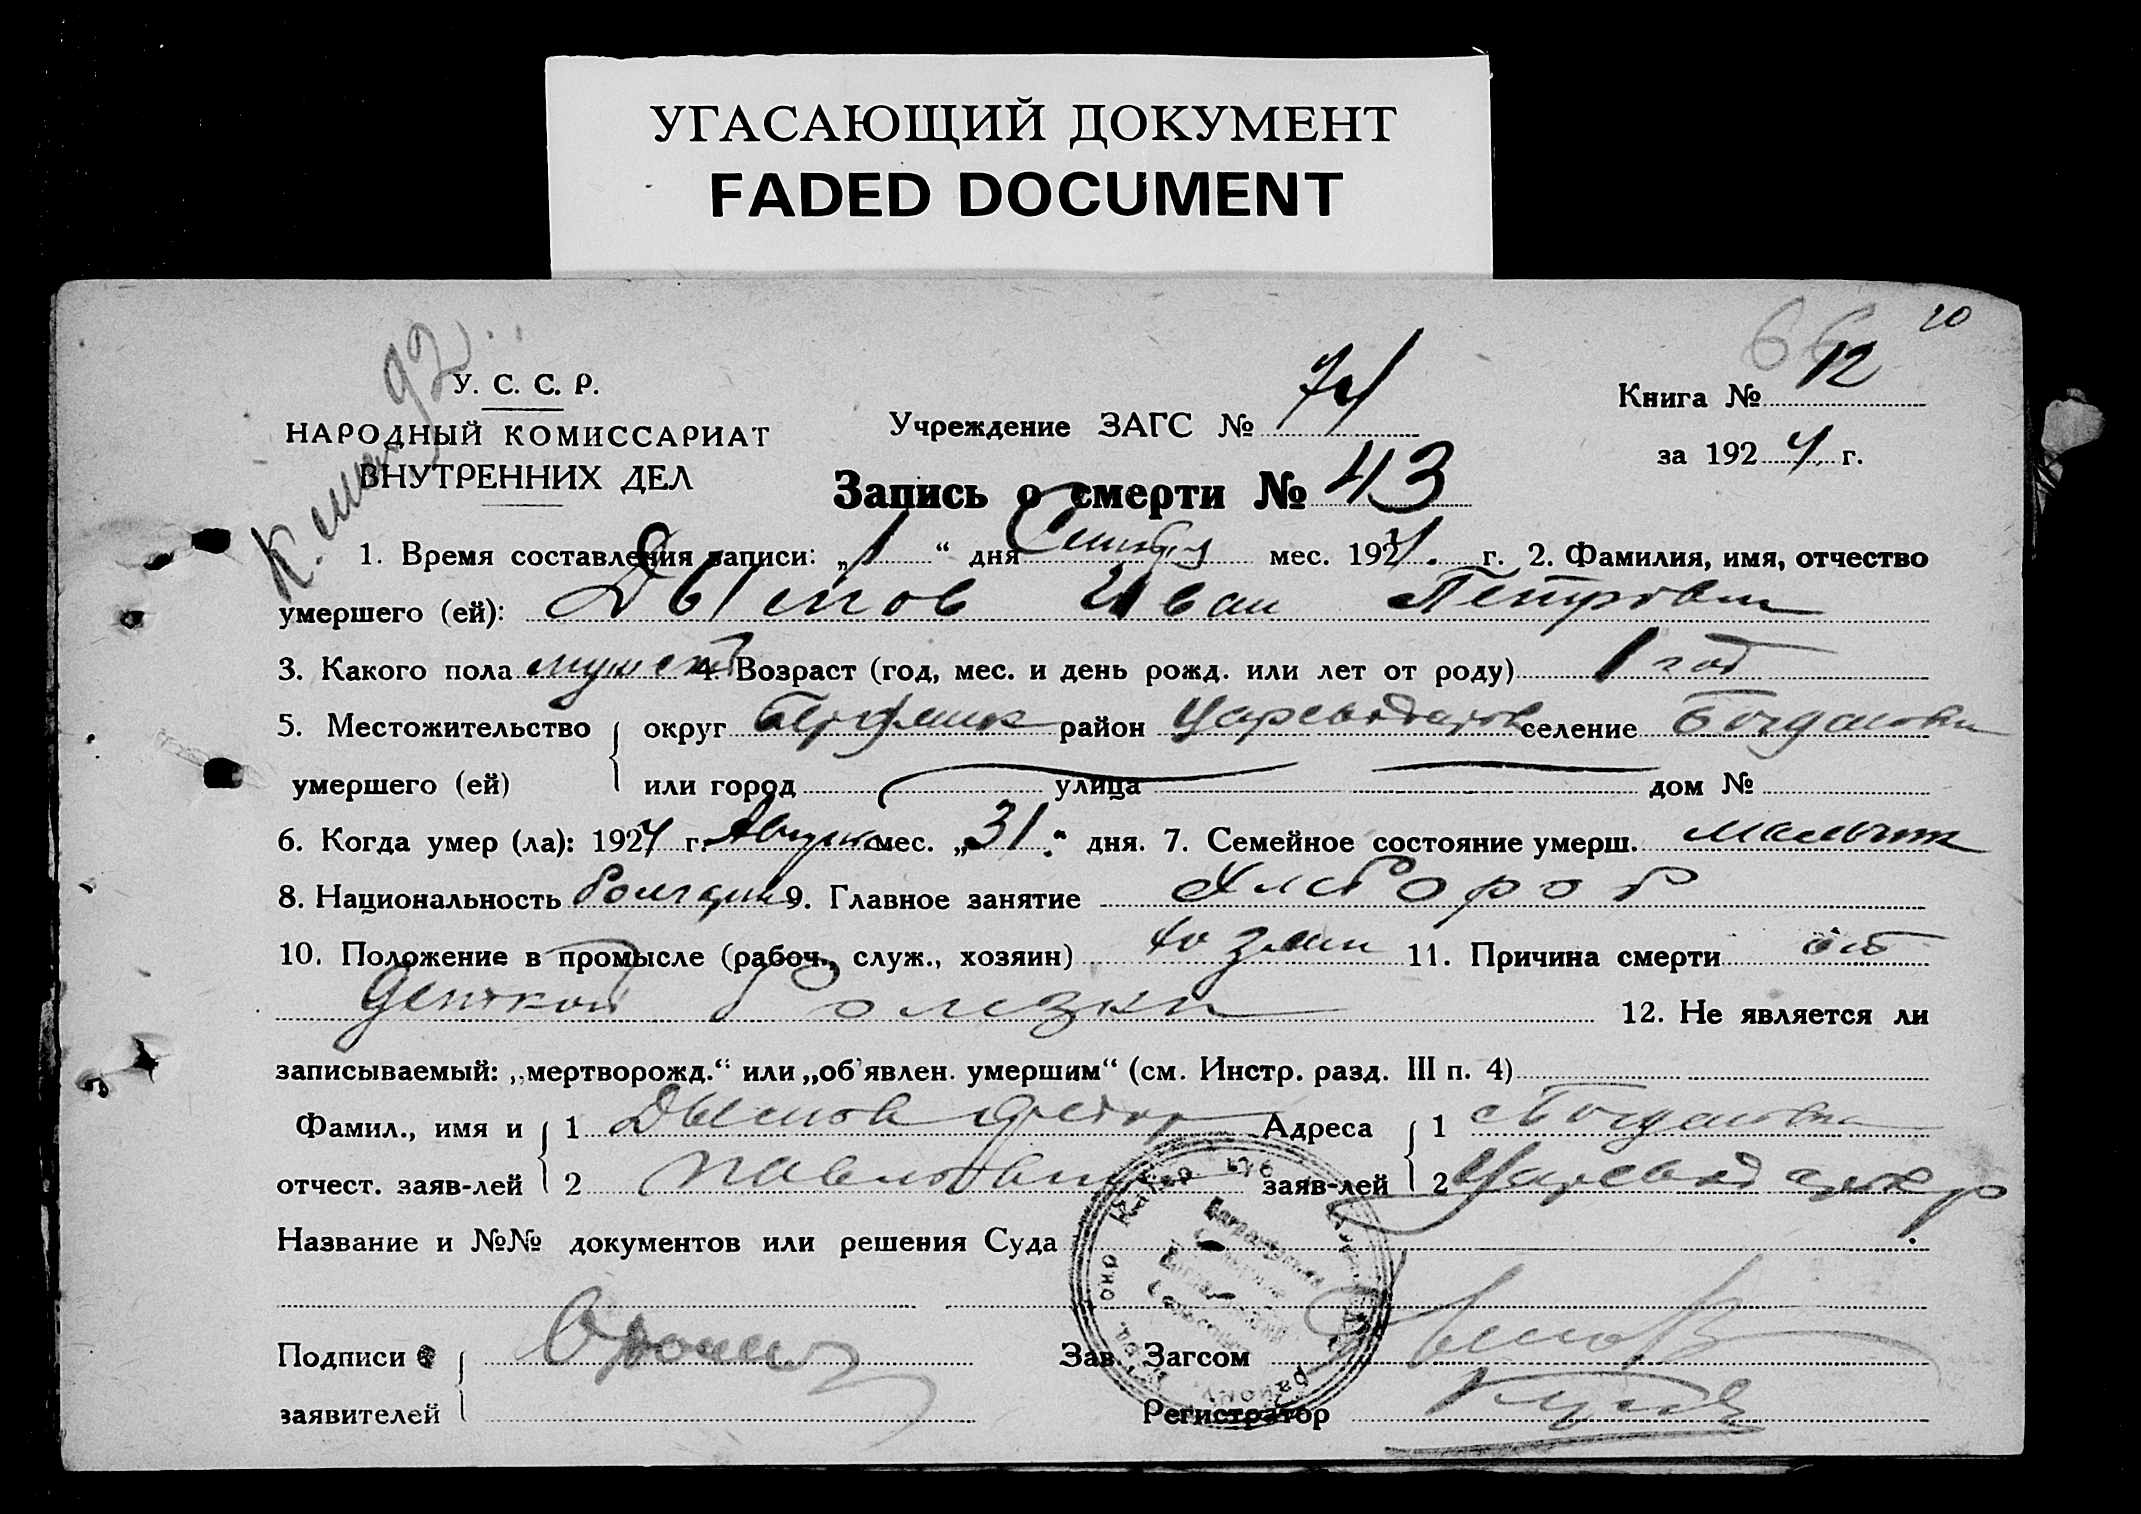 УГАСАЮЩИЙ ДОКУМЕНТ
FADED DOCUMENT
20
66
У. С. С. Р.
НАРОДНЫЙ КОМИССАРИАТ
ВНУТРЕННИХ ДЕЛ
92
Учреждение ЗАГС №
Книга № 12
за 1924 г.
Запись о смерти № 43
1. Время составления записи: „1“ дня мес. 1924 г. 2. Фамилия, имя, отчество
умершего (ей): Дымов Иван Петрович
3. Какого пола мужск 4. Возраст (год, мес. и день рожд. или лет от роду) 1 год
5. Местожительство округ район селение Богдановка
умершего (ей) или город улица дом №
6. Когда умер (ла): 1924 г. Августа мес. „31“ дня. 7. Семейное состояние умерш. мальчик
8. Национальность болгарин 9. Главное занятие Хлебороб
10. Положение в промысле (рабоч., служ., хозяин) хозяин 11. Причина смерти от
детской болезни 12. Не является ли
записываемый: „мертворожд.“ или „об'явлен. умершим“ (см. Инстр. разд. III п. 4)
Фамил., имя и 1 Дымов Адреса 1 Богдановка
отчест. заяв-лей 2 Павлович заяв-лей 2
Название и №№ документов или решения Суда
Подписи Зав. Загсом
заявителей Регистратор